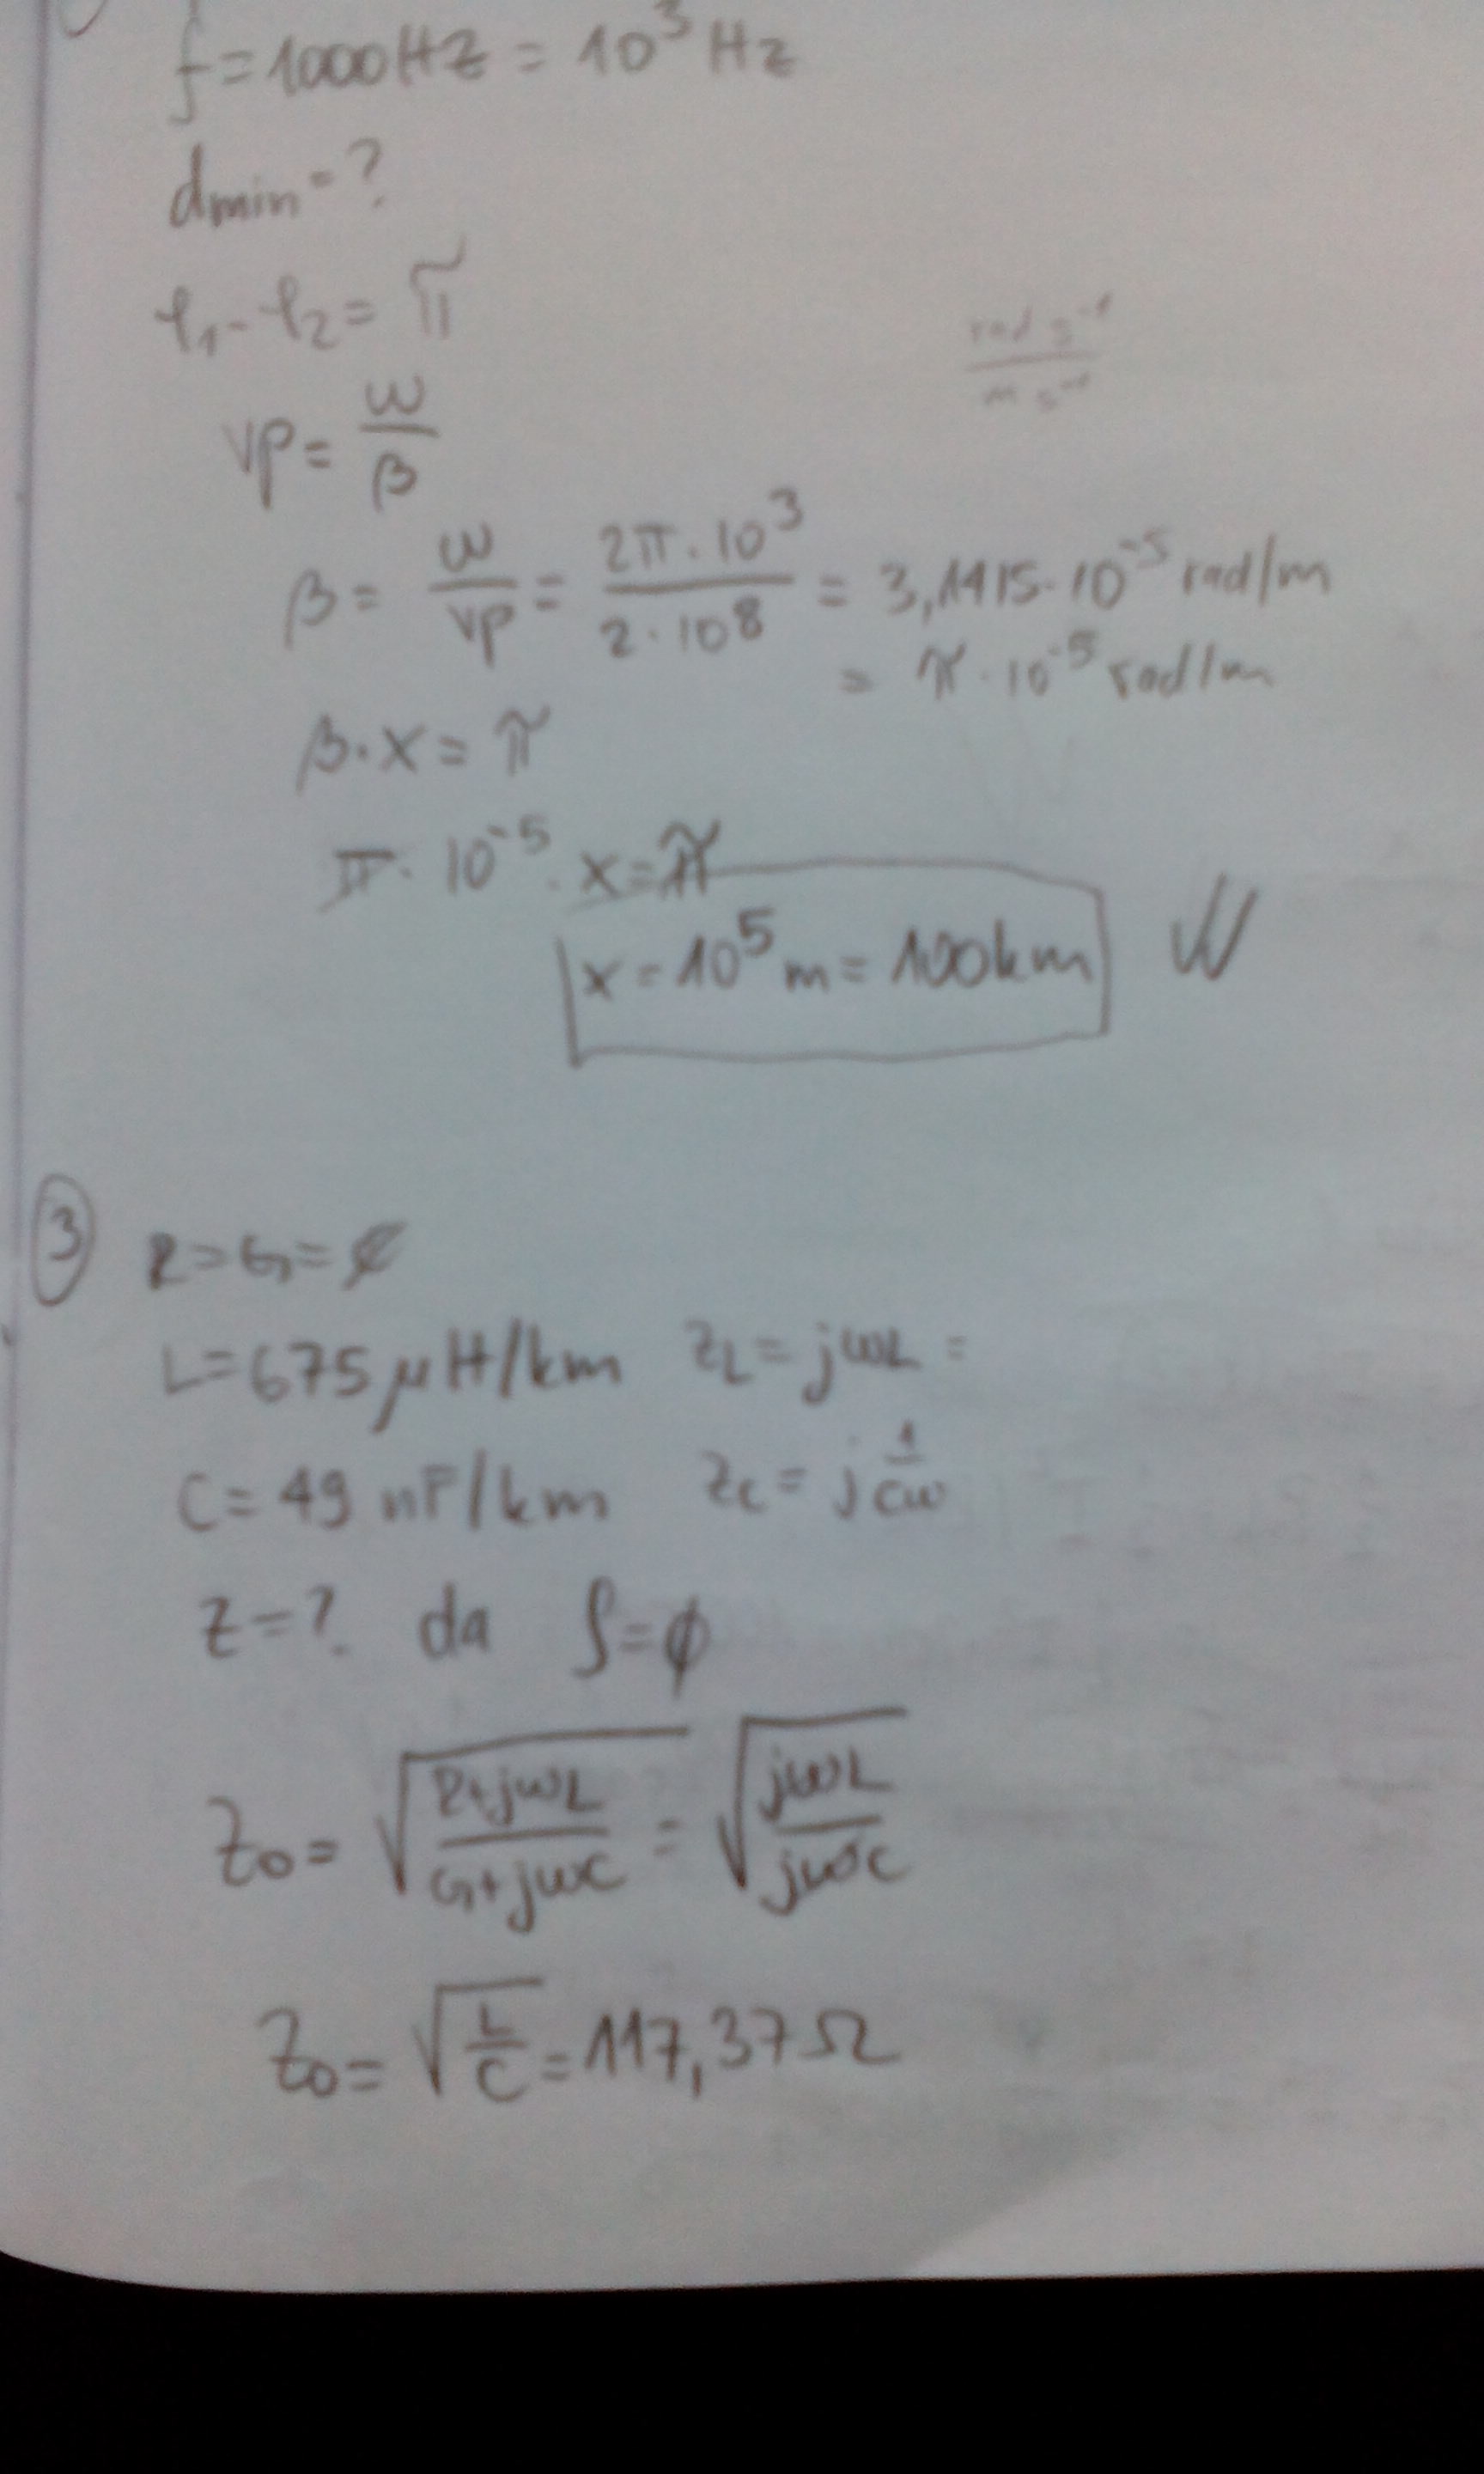 f = 1000 HZ = 10³ Hz
dmin = ?
φ₁ - φ₂ = π
rad s⁻¹ / m s⁻¹
vp = ω/β
β = ω/vp = 2π · 10³ / 2 · 10⁸ = 3,1415 · 10⁻⁵ rad/m
= π · 10⁻⁵ rad/m
β · x = π
π · 10⁻⁵ · x = π
x = 10⁵ m = 100 km
③ R = G = ∅
L = 675 μH/km ZL = jωL =
C = 49 nF/km Zc = j 1/Cω
Z = ? da ρ = ∅
Z₀ = √((R+jωL)/(G+jωC)) = √(jωL/jωC)
Z₀ = √(L/C) = 117,37 Ω